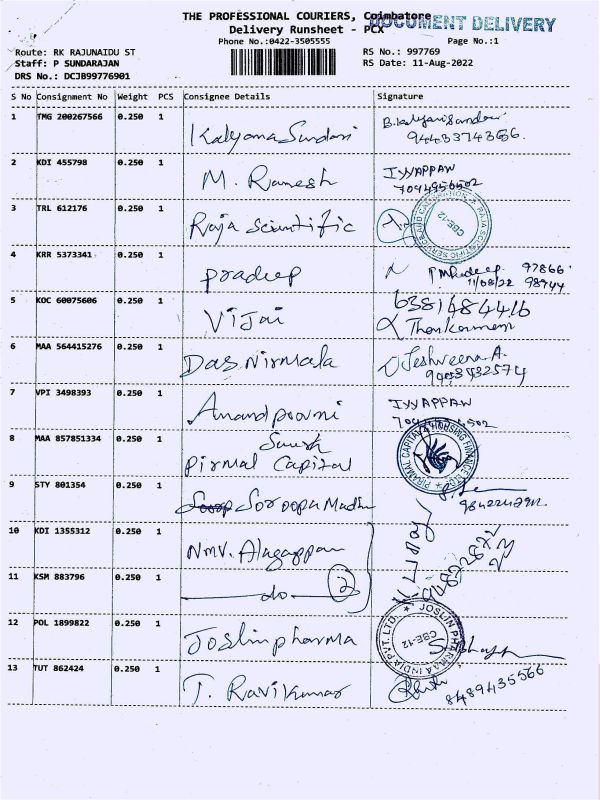 THE PROFESSIONAL COURIERS, Coimbatore
DOCUMENT DELIVERY
Delivery Runsheet - PCX
Phone No.:0422-3505555
Page No.:1
Route: RK RAJUNAIDU ST
RS No.: 997769
Staff: P SUNDARAJAN
RS Date: 11-Aug-2022
DRS No.: DCJB99776901
S No Consignment No Weight PCS Consignee Details Signature
1 TMG 200267566 0.250 1 Kalyana Sundari B.kalyanisundari
94433743656.
2 KDI 455798 0.250 1 M. Ramesh IYYAPPAN
7094956502
3 TRL 612176 0.250 1 Raja Scientific
RAJA SCIENTIFIC SERVICE AND CALIBRATION
CBE-12
4 KRR 5373341 0.250 1 pradeep 97866
11/08/22 98944
5 KOC 60075606 0.250 1 Vijai 6381484416
6 MAA 564415276 0.250 1 Das Nirmala Jeshveena.A.
7 VPI 3498393 0.250 1 Anand IYYAPPAN
8 MAA 857851334 0.250 1 Suresh
Pirmal Capital
PIRAMAL CAPITAL & HOUSING FINANCE LTD
9 STY 801354 0.250 1 Soroopa Madhu
10 KDI 1355312 0.250 1 NMV. Alagappan
11 KSM 883796 0.250 1 do 2
12 POL 1899822 0.250 1 Joslin pharma
JOSLIN PHARMA INDIA PVT. LTD.
CBE-12
13 TUT 862424 0.250 1 T. Ravikumar 8489435566